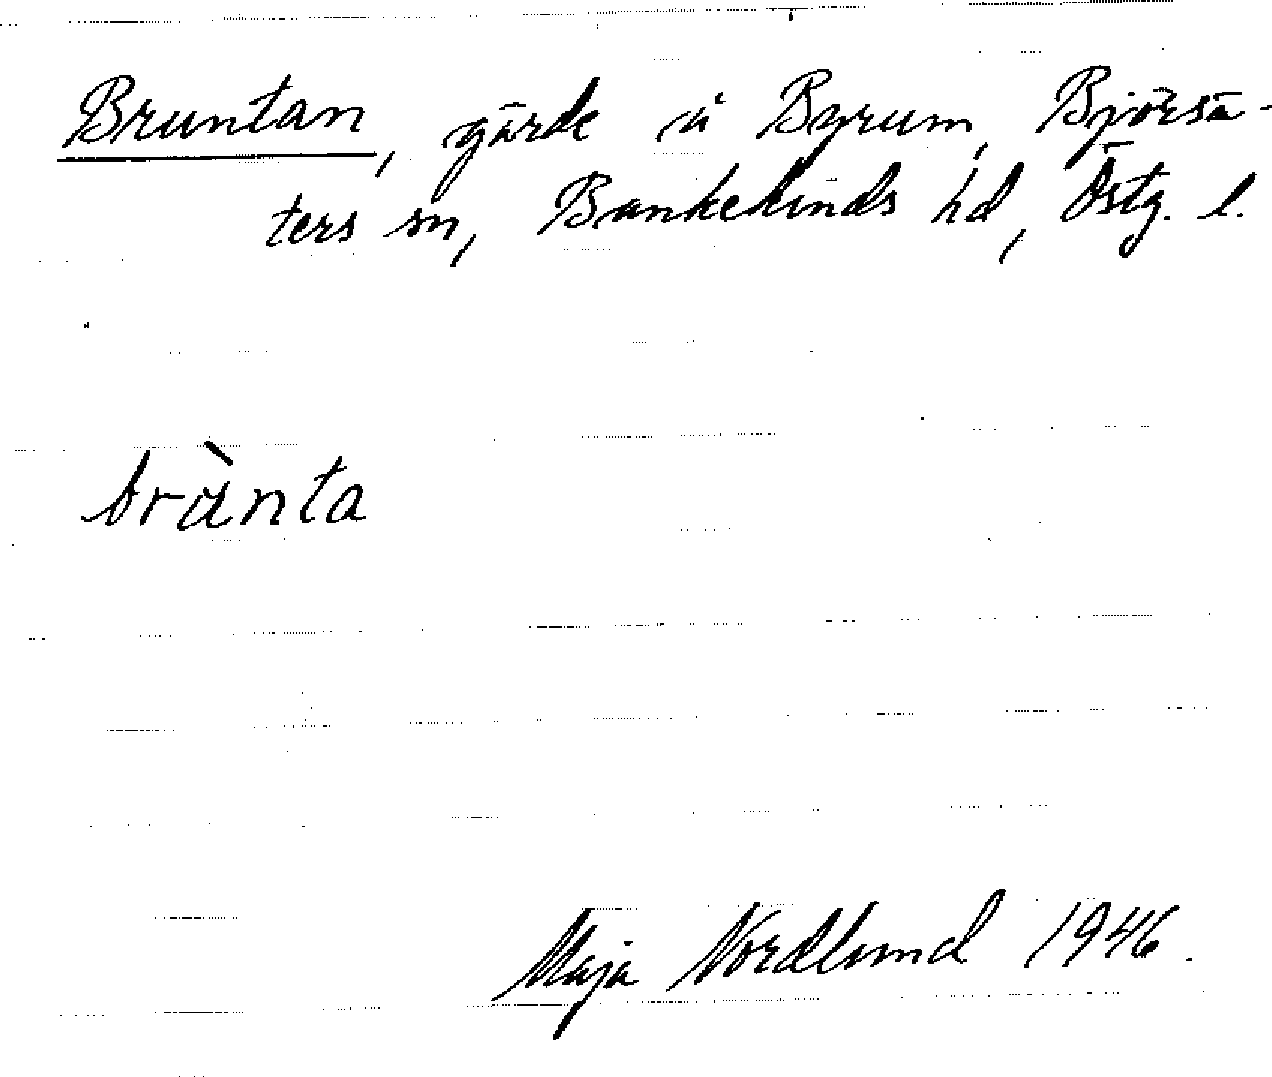 Bruntan, gärde å Byrum, Björsä-
ters sn, Bankekinds hd, Östg. l.
brànta
Maja Nordlund 1946.